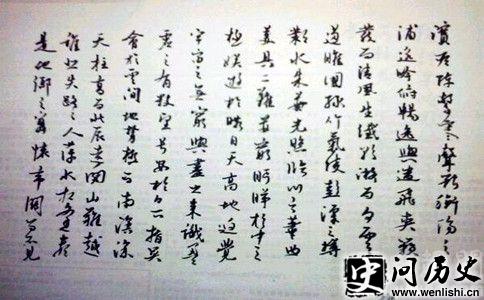 濱雁陣驚寒聲斷衡陽之
浦遥吟俯暢逸興遄飛爽籟
發而清風生纖歌凝而白雲
遏睢園綠竹氣凌彭澤之樽
鄴水朱華光照臨川之筆四
美具二難并窮睇眄於中天
極娱遊於暇日天高地迥覺
宇宙之無窮興盡悲來識盈
虛之有數望長安於日下指吳
會於雲間地勢極而南溟深
天柱高而北辰遠關山難越
誰悲失路之人萍水相逢盡
是他鄉之客懷帝閽而不見
史问历史
www.wenlishi.cn